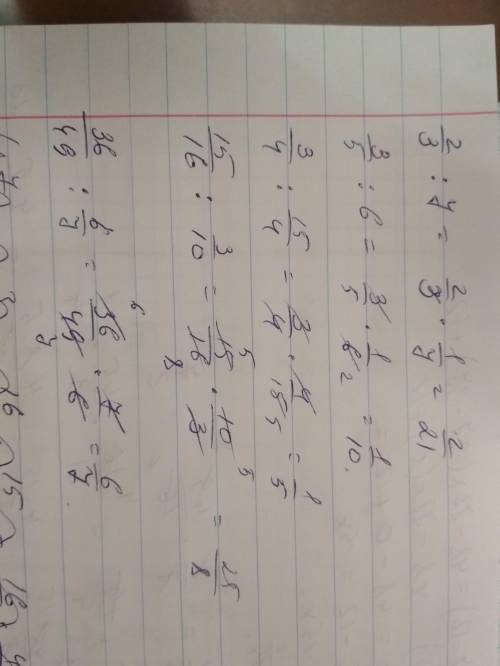 2/3 : 7 = 2/3 · 1/7 = 2/21
3/5 : 6 = 3/5 · 1/6 2 = 1/10.
3/4 : 15/4 = 3/4 · 4/15 5 = 1/5
15/16 : 3/10 = 15/16 · 10/3 = 25/8
5 8 5
36/49 : 6/7 = 36/49 · 7/6 = 6/7
6 7